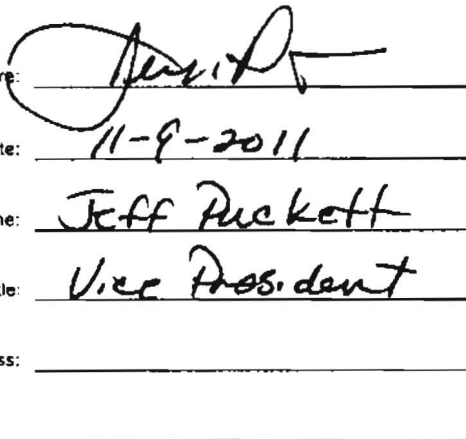 re:
te: 11-9-2011
ne: Jeff Puckett
tle: Vice President
ss: